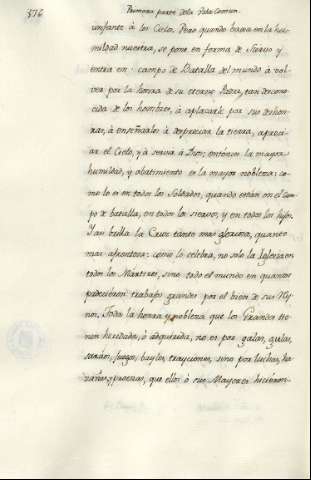 376
Primera parte dela Vida Comun.
infante à los Cielos. Pero quando baxa en la hu-
mildad nuestra, se pone en forma de Siervo y
entra en campo de Batalla del mundo à vol-
ver por la honra de su eterno Padre, tan descono-
cida de los hombres, à aplacarle por sus deshon-
ras, à enseñarlos à depreciar la tierra, aprecì-
ar el Cielo, y à servir à Dios; entònces la mayor
humildad, y abatimiento es la mayor nobleza: co-
mo lo es en todos los Soldados, quando estàn en el Cam-
po de batalla, en todos los siervos, y en todos los hijos.
Y assi brilla la Cruz tanto mas gloriosa, quanto
mas afrentosa: como lo celebra, no solo la Iglesia en
todos los Martires, sino todo el mundo en quantos
padecieron trabajos grandes por el bien de sus Rey-
nos. Toda la honra y nobleza que los Grandes tie-
nen heredada, ò adquirida, no es por galas, gulas,
saraos, juegos, bayles, trayciones, sino por luchas, ha-
zañas, y proezas, que ellos ò sus Mayores hicieron